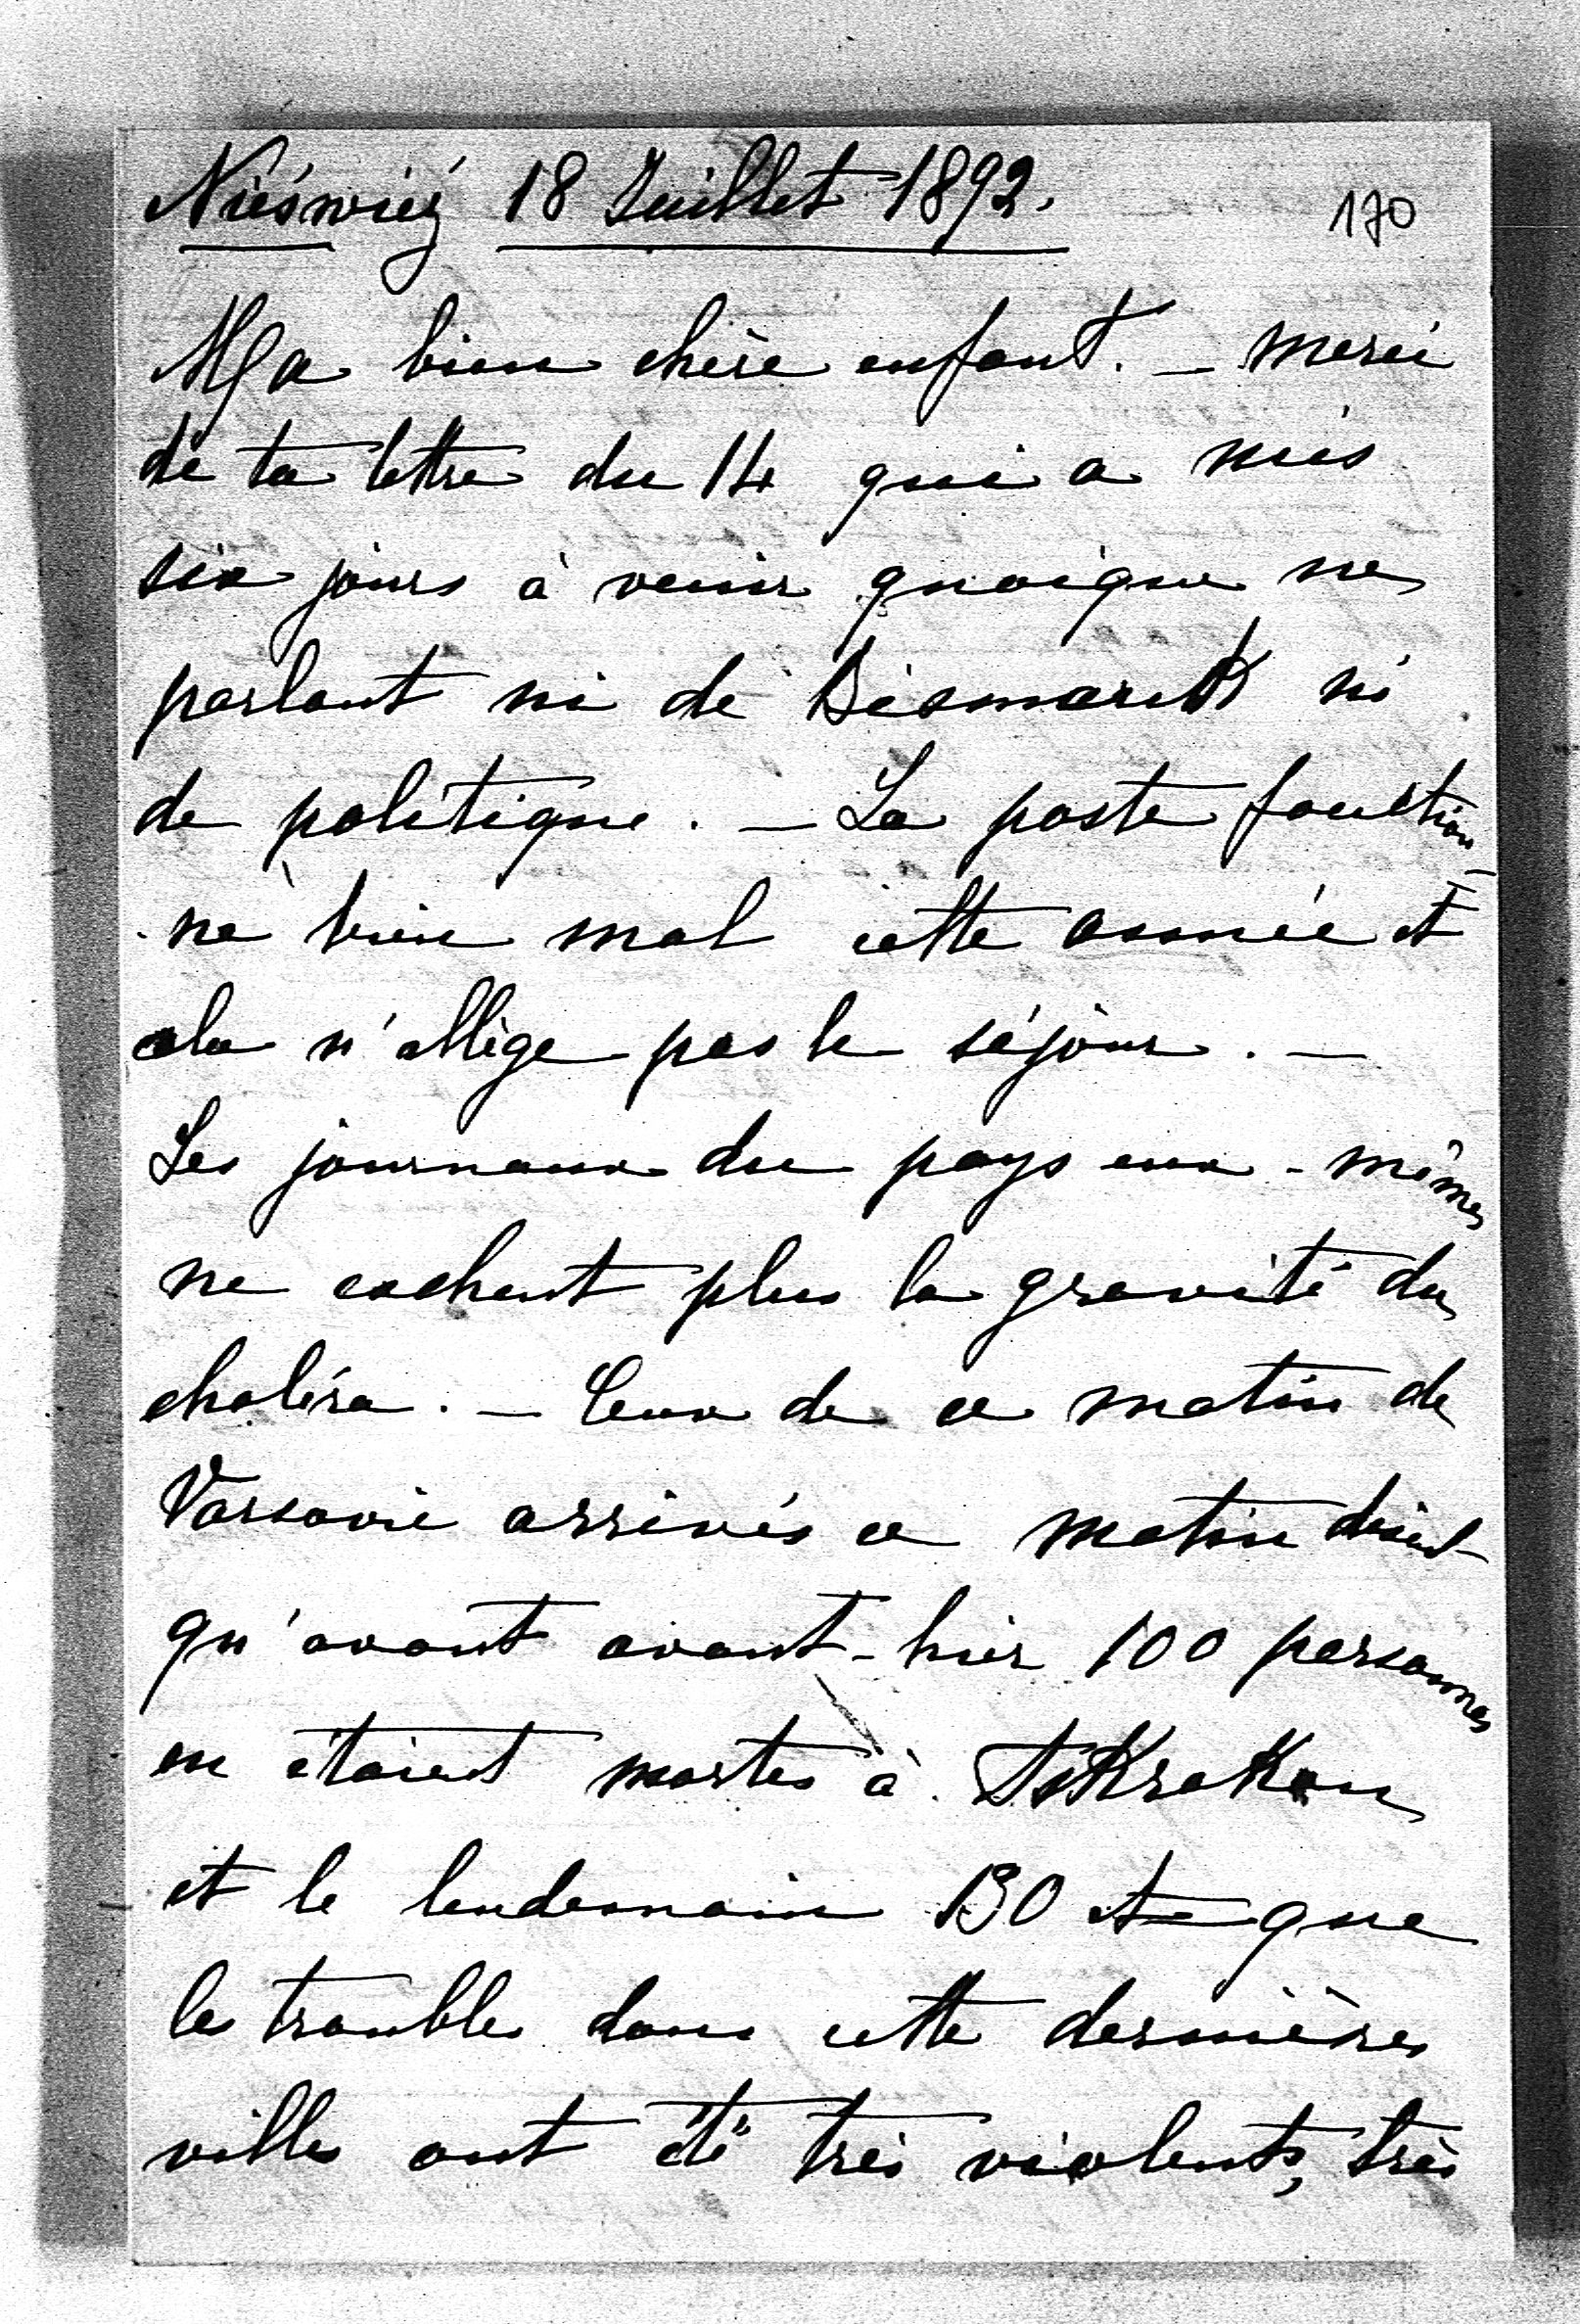 Nieśwież 18 Juillet 1892.
170
Ma bien chère enfant. — merci
de ta lettre du 14 qui a mis
six jours à venir quoique ne
parlant ni de Bismarck ni
de politique. — La poste fonction-
ne bien mal cette année et
cela n'allège pas le séjour. —
Les journaux du pays eux-mêmes
ne cachent plus la gravité du
choléra. — Ceux de ce matin de
Varsovie arrivés ce matin disent
qu'avant avant-hier 100 personnes
en étaient mortes à
et le lendemain 130 et que
les troubles dans cette dernière
ville ont été très violents, très